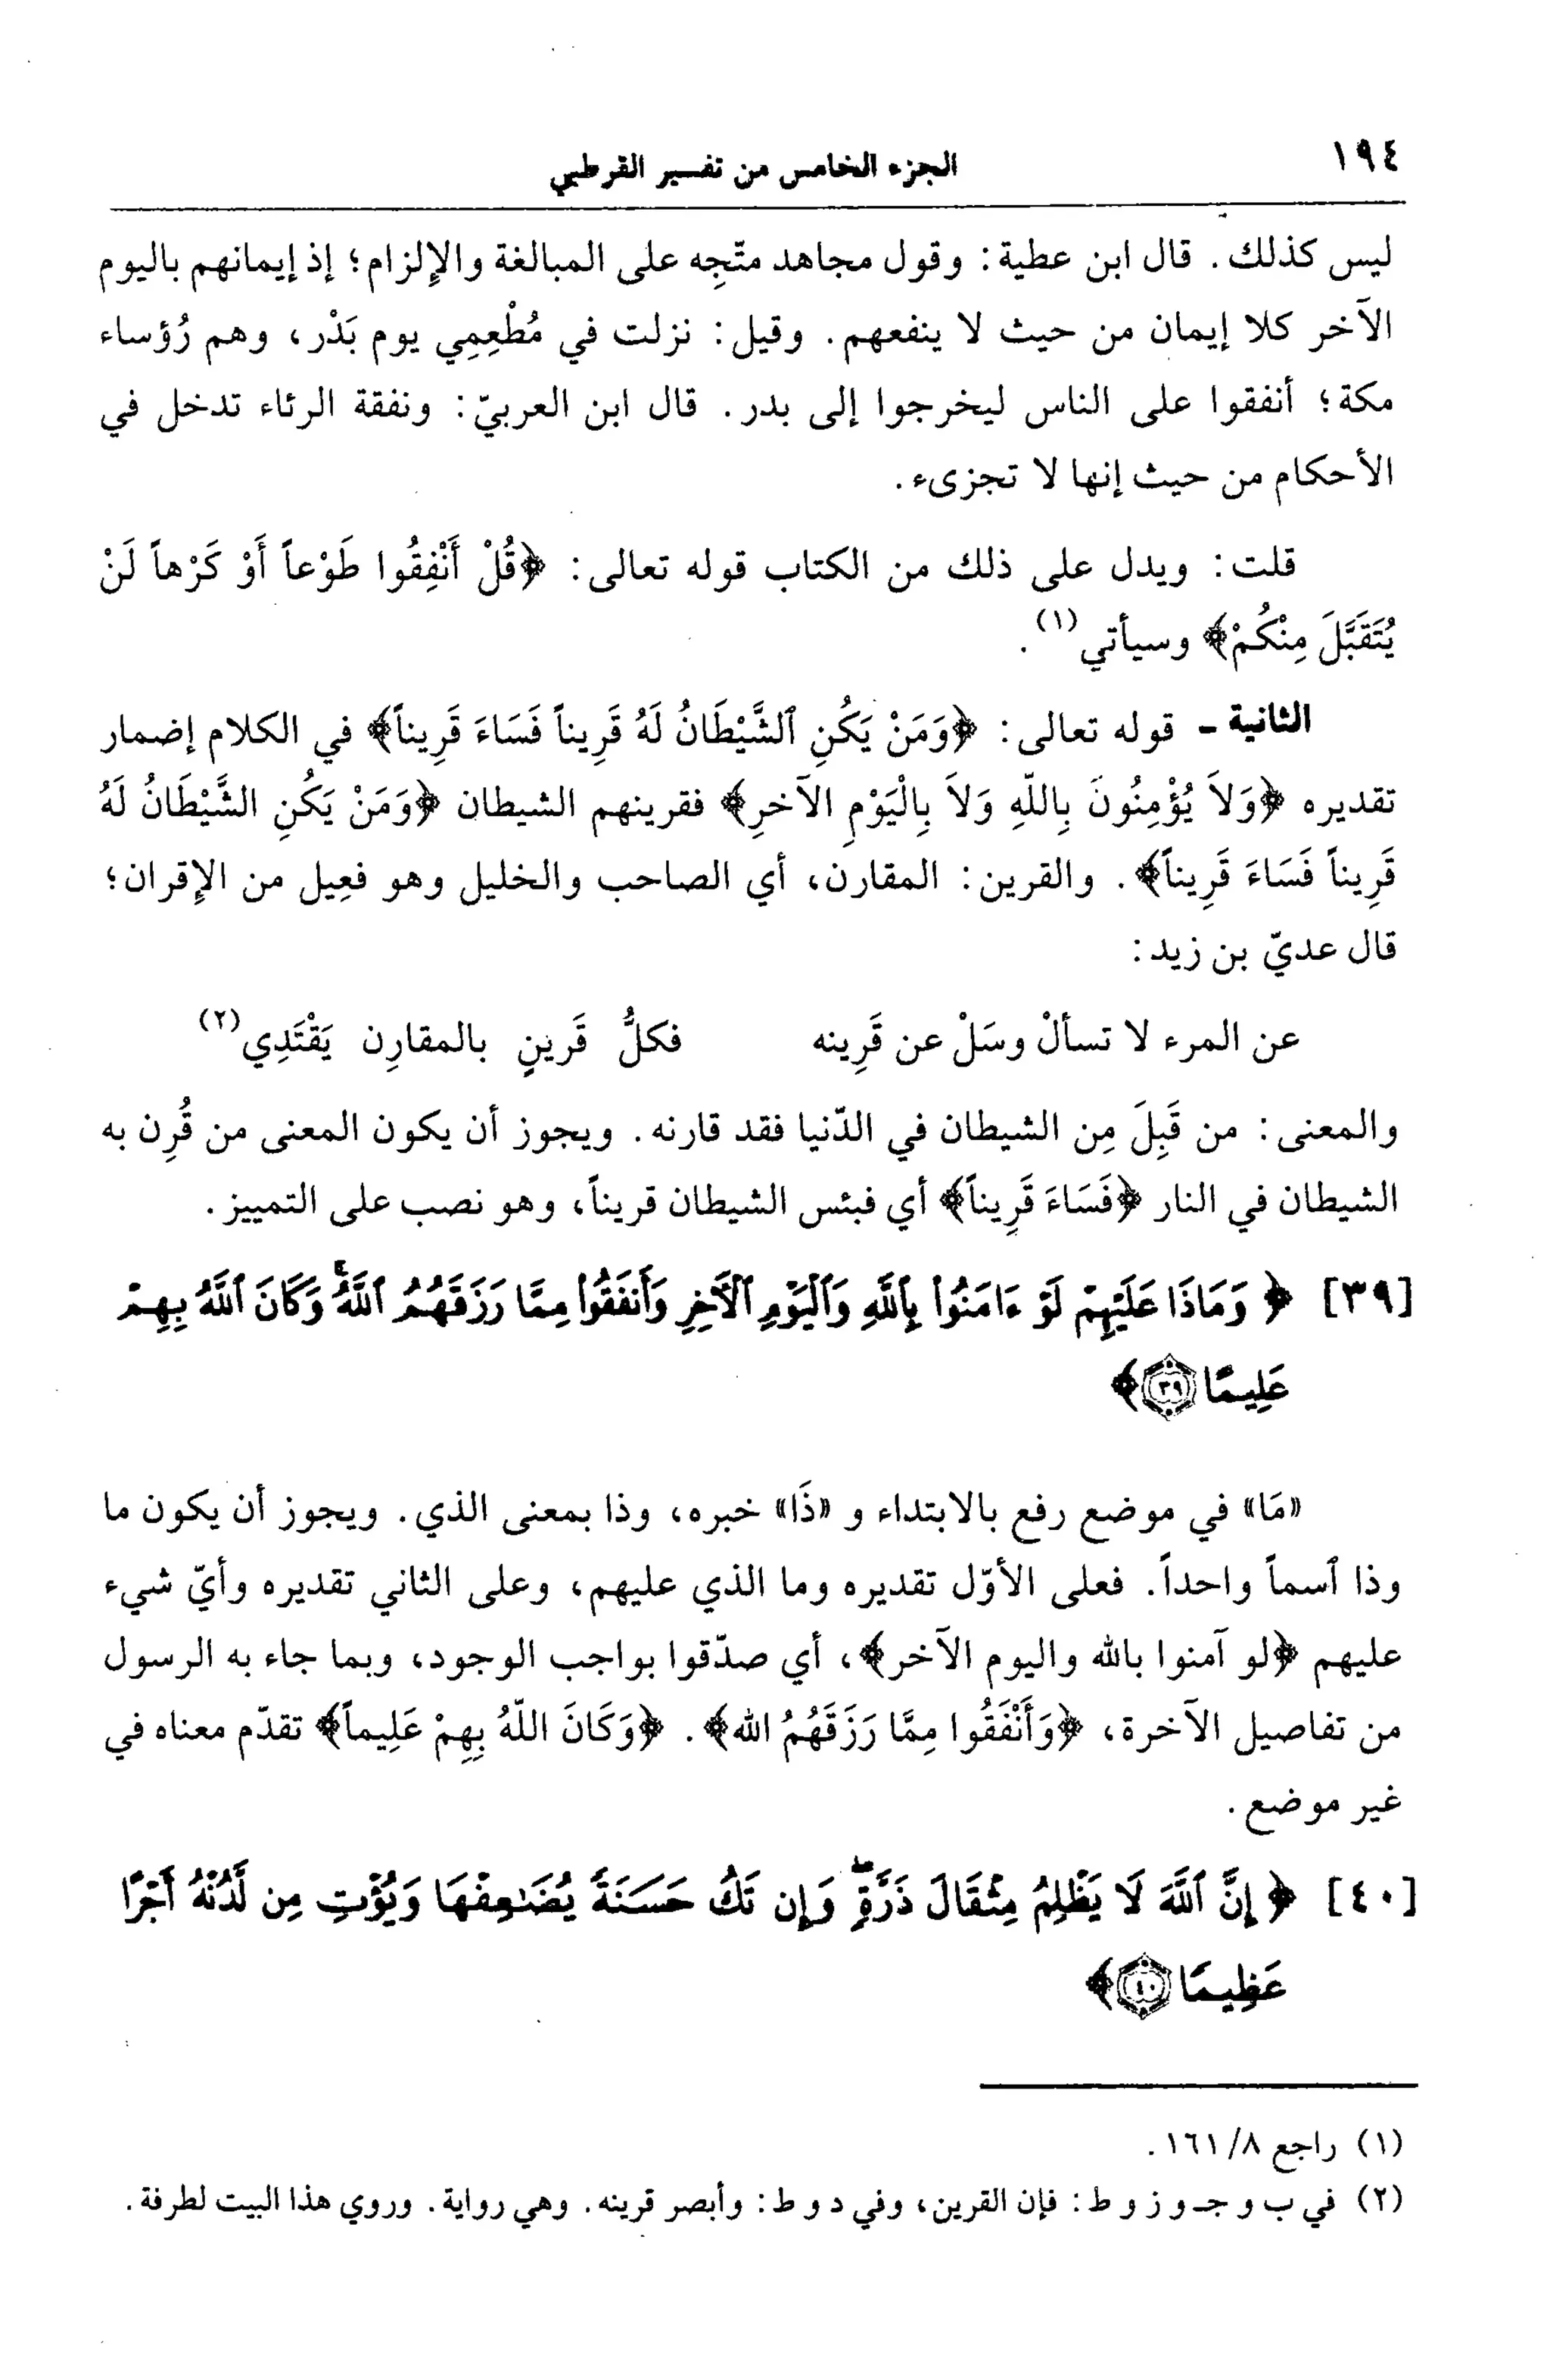 ١٩٤
الجزء الخامس من تفسير القرطبي
ليس كذلك. قال ابن عطية: وقول مجاهد متّجِه على المبالغة والإلزام؛ إذ إيمانهم باليوم
الآخر كلا إيمان من حيث لا ينفعهم. وقيل: نزلت في مُطْعِمِي يوم بَدْر، وهم رُؤساء
مكة؛ أنفقوا على الناس ليخرجوا إلى بدر. قال ابن العربيّ: ونفقة الرئاء تدخل في
الأحكام من حيث إنها لا تجزىء.
قلت: ويدل على ذلك من الكتاب قوله تعالى: ﴿قُلْ أَنْفِقُوا طَوْعاً أَوْ كَرْهاً لَنْ
يُتَقَبَّلَ مِنْكُمْ﴾ وسيأتي(١).
الثانية - قوله تعالى: ﴿وَمَنْ يَكُنِ ٱلشَّيْطَانُ لَهُ قَرِيناً فَسَاءَ قَرِيناً﴾ في الكلام إضمار
تقديره ﴿وَلاَ يُؤْمِنُونَ بِاللّهِ وَلاَ بِالْيَوْمِ الآخرِ﴾ فقرينهم الشيطان ﴿وَمَنْ يَكُنِ الشَّيْطَانُ لَهُ
قَرِيناً فَسَاءَ قَرِيناً﴾. والقرين: المقارن، أي الصاحب والخليل وهو فعِيل من الإقران؛
قال عديّ بن زيد:
عن المرء لا تسألْ وسَلْ عن قَرِينه فكلُّ قَرينٍ بالمقارِن يَقْتَدِي(٢)
والمعنى: من قَبِلَ مِن الشيطان في الدّنيا فقد قارنه. ويجوز أن يكون المعنى من قُرِن به
الشيطان في النار ﴿فَسَاءَ قَرِيناً﴾ أي فبئس الشيطان قريناً، وهو نصب على التمييز.
[٣٩] ﴿وَمَاذَا عَلَيْهِمْ لَوْ ءَامَنُوا۟ بِٱللَّهِ وَٱلْيَوْمِ ٱلْأَخِرِ وَأَنفَقُوا۟ مِمَّا رَزَقَهُمُ ٱللَّهُ ۚ وَكَانَ ٱللَّهُ بِهِمْ
عَلِيمًا ٣٩﴾
«مَا» في موضع رفع بالابتداء و «ذَا» خبره، وذا بمعنى الذي. ويجوز أن يكون ما
وذا ٱسماً واحداً. فعلى الأوّل تقديره وما الذي عليهم، وعلى الثاني تقديره وأيّ شيء
عليهم ﴿لو آمنوا بالله واليوم الآخر﴾، أي صدّقوا بواجب الوجود، وبما جاء به الرسول
من تفاصيل الآخرة، ﴿وَأَنْفَقُوا مِمَّا رَزَقَهُمُ الله﴾. ﴿وَكَانَ اللّهُ بِهِمْ عَلِيماً﴾ تقدّم معناه في
غير موضع.
[٤٠] ﴿إِنَّ ٱللَّهَ لَا يَظْلِمُ مِثْقَالَ ذَرَّةٍ ۖ وَإِن تَكُ حَسَنَةً يُضَـٰعِفْهَا وَيُؤْتِ مِن لَّدُنْهُ أَجْرًا
عَظِيمًا ٤٠﴾
(١) راجع ١٦١/٨.
(٢) في ب و جـ و ز و ط: فإن القرين، وفي د و ط: وأبصر قرينه. وهي رواية. وروي هذا البيت لطرفة.